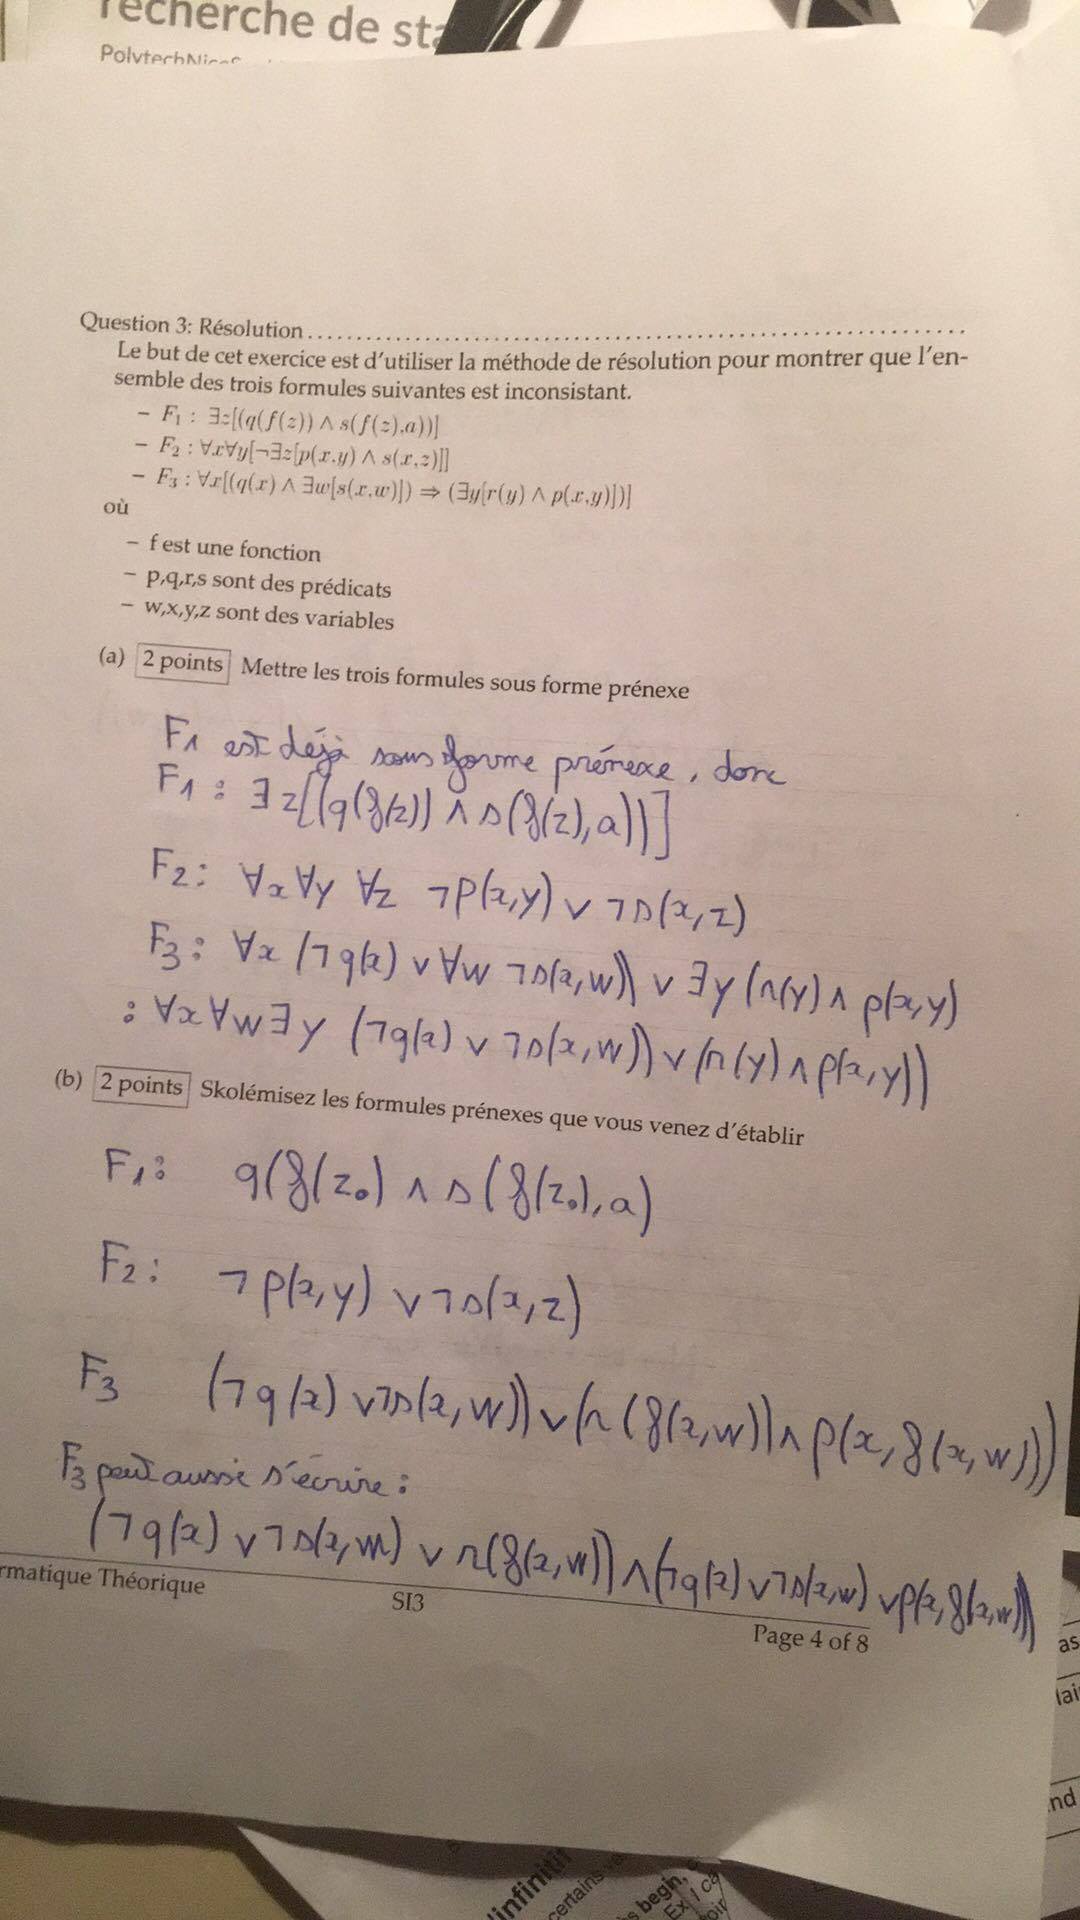 recherche de sta
PolytechNice
Question 3: Résolution
Le but de cet exercice est d'utiliser la méthode de résolution pour montrer que l'en-
semble des trois formules suivantes est inconsistant.
– F₁ : ∃z[(q(f(z)) ∧ s(f(z),a))]
– F₂ : ∀x∀y[¬∃z[p(x,y) ∧ s(x,z)]]
– F₃ : ∀x[(q(x) ∧ ∃w[s(x,w)]) ⇒ (∃y[r(y) ∧ p(x,y)])]
où
– f est une fonction
– p,q,r,s sont des prédicats
– w,x,y,z sont des variables
(a) 2 points Mettre les trois formules sous forme prénexe
F1 est déjà sous forme prénexe, donc
F1 : ∃ z[(q(f(z)) ∧ s(f(z), a))]
F2 : ∀x ∀y ∀z ¬p(x,y) ∨ ¬s(x,z)
F3 : ∀x (¬q(x) ∨ ∀w ¬s(x,w)) ∨ ∃y (r(y) ∧ p(x,y)
: ∀x ∀w ∃y (¬q(x) ∨ ¬s(x,w)) ∨ (r(y) ∧ p(x,y))
(b) 2 points Skolémisez les formules prénexes que vous venez d'établir
F1 : q(f(z₀) ∧ s(f(z₀), a)
F2 : ¬p(x,y) ∨ ¬s(x,z)
F3 (¬q(x) ∨ ¬s(x,w)) ∨ (r(f(x,w)) ∧ p(x, f(x,w)))
F3 peut aussi s'écrire :
(¬q(x) ∨ ¬s(x,w) ∨ r(f(x,w)) ∧ (¬q(x) ∨ ¬s(x,w) ∨ p(x, f(x,w)))
rmatique Théorique
SI3
Page 4 of 8
as
lai
nd
l'infinitif
certains
begin,
Ex I ca